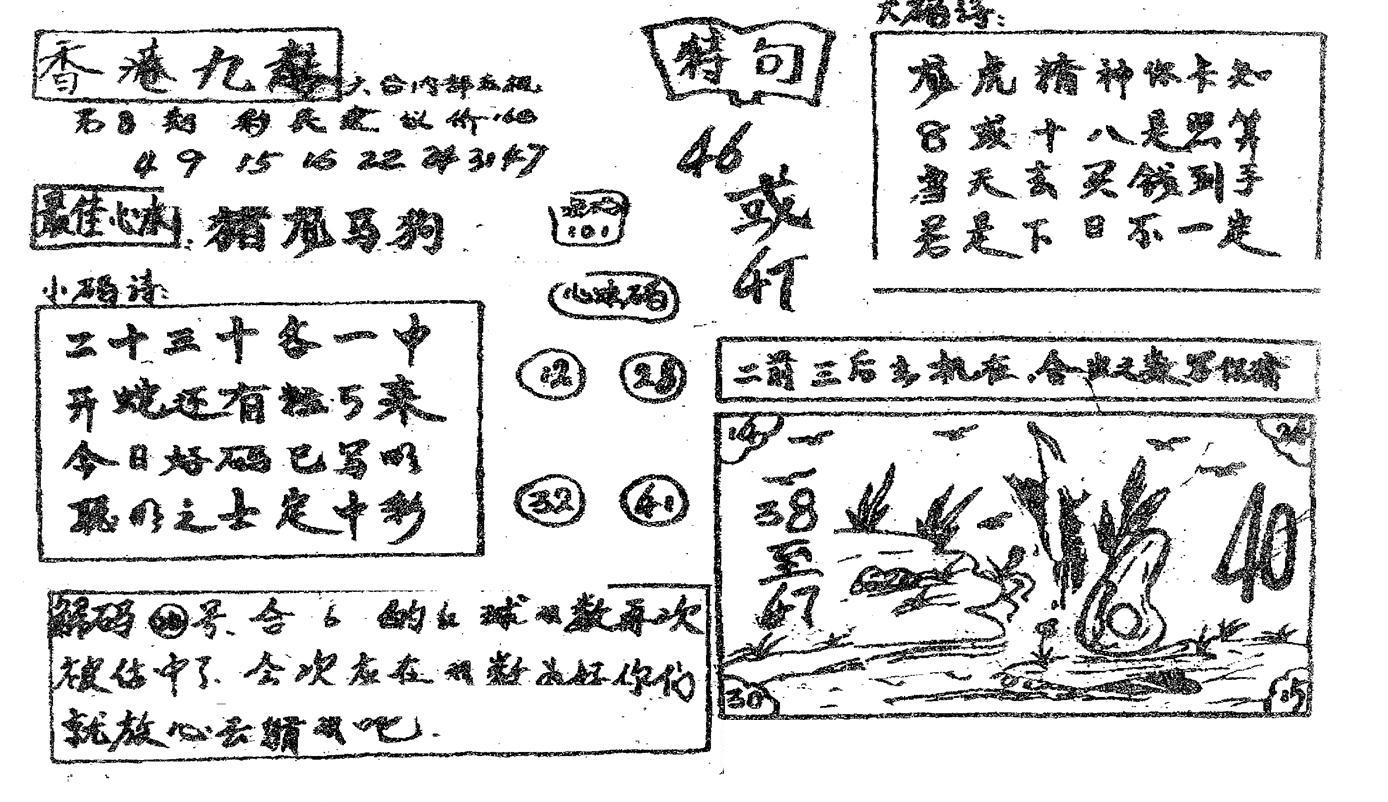 香港九龙
六合内部
第8期 彩民 议价:
4 9 15 16 22 24 31 47
最佳心水: 猪龙马狗
小码诗:
二十三十各一中
开蛇还有 5来
今日好码已写明
聪明之士定中彩
心水码
12 28
32 41
解码 号.合 6 的红球 数再次
被估中了.今次应在 数为好你们
就放心去猜 吧.
特句
46
或
47
大码诗:
龙虎精神你卡知
8或十八是照算
当天去买钱到手
若是下日不一定
二前三后 机在.合 之数
14 26
38
至
47
40
30 15